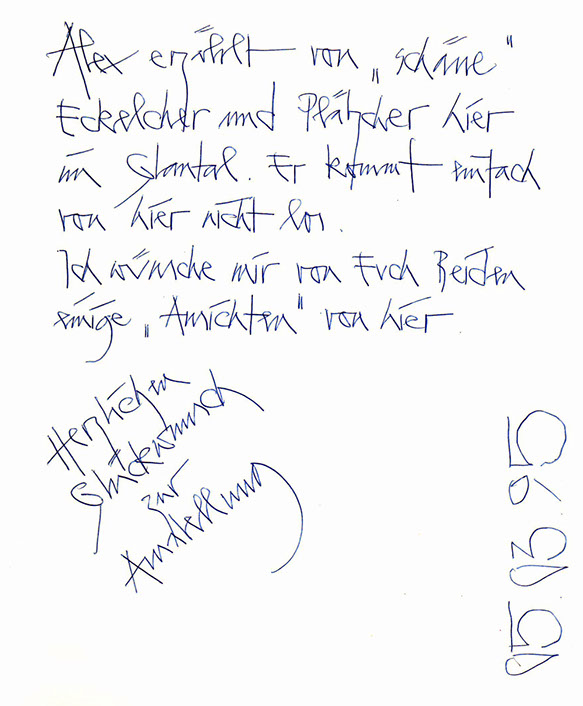 Alex erzählt von „schäne"
Eckelcher und Plätzcher hier
im Glantal. Er kommt einfach
von hier nicht los.
Ich wünsche mir von Euch Beiden
einige „Ansichten" von hier.
Herzlichen
Glückwunsch
zur
Ausstellung